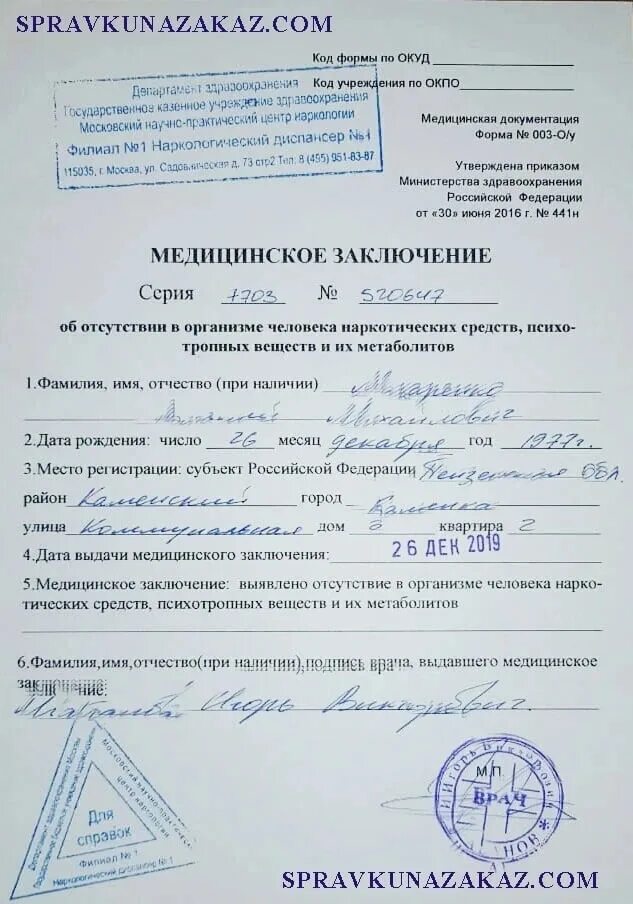 SPRAVKUNAZAKAZ.COM
Код формы по ОКУД
Код учреждения по ОКПО
Департамент здравоохранения
Государственное казенное учреждение здравоохранения
Московский научно-практический центр наркологии
Филиал №1 Наркологический диспансер №1
115035, г. Москва, ул. Садовническая д. 73 стр2 Тел: 8 (495) 951-83-87
Медицинская документация
Форма № 003-О/у
Утверждена приказом
Министерства здравоохранения
Российской Федерации
от «30» июня 2016 г. № 441н
МЕДИЦИНСКОЕ ЗАКЛЮЧЕНИЕ
Серия 7703 № 520647
об отсутствии в организме человека наркотических средств, психо-
тропных веществ и их метаболитов
1.Фамилия, имя, отчество (при наличии)
Михайлович
2.Дата рождения: число 26 месяц декабря год 1977г.
3.Место регистрации: субъект Российской Федерации Пензенская обл.
район Каменский город Каменка
улица Коммунальная дом 8 квартира 2
4.Дата выдачи медицинского заключения: 26 ДЕК 2019
5.Медицинское заключение: выявлено отсутствие в организме человека нарко-
тических средств, психотропных веществ и их метаболитов
6.Фамилия,имя,отчество(при наличии),подпись врача, выдавшего медицинское
заключение:
Игорь Викторович.
Московский научно-практический
центр наркологии
Для
справок
Филиал № 1
Наркологический диспансер № 1
М.П.
Игорь Викторович
ВРАЧ
SPRAVKUNAZAKAZ.COM